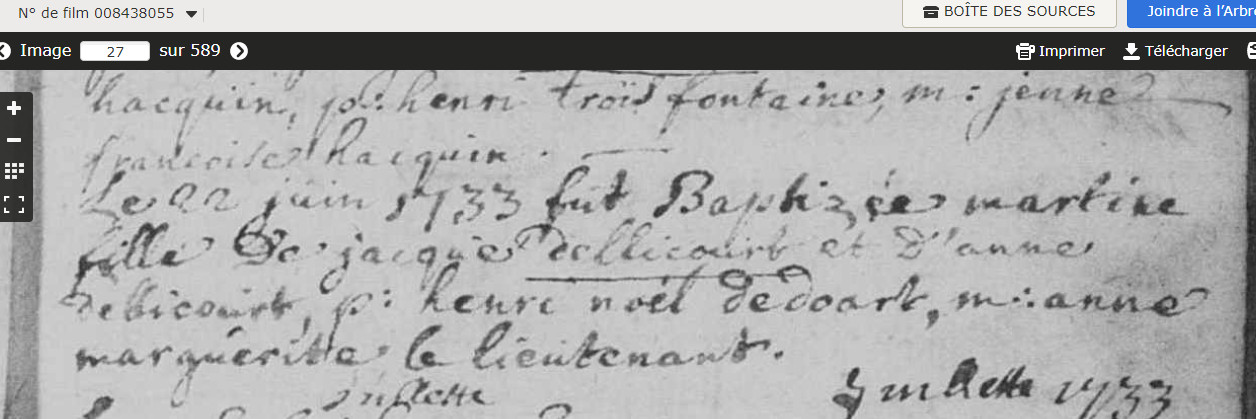 N° de film 008438055
BOÎTE DES SOURCES
Joindre à l'Arbre
Image 27 sur 589
Imprimer
Télécharger
hacquin, p: henri trois fontaine, m: jenne
francoise hacquin.
Le 22 juin 1733 fut Baptizée martine
fille De jacque dellicourt et D'anne
debicourt, p: henri noël dedoart, m: anne
marguerite le lieutenant.
1733